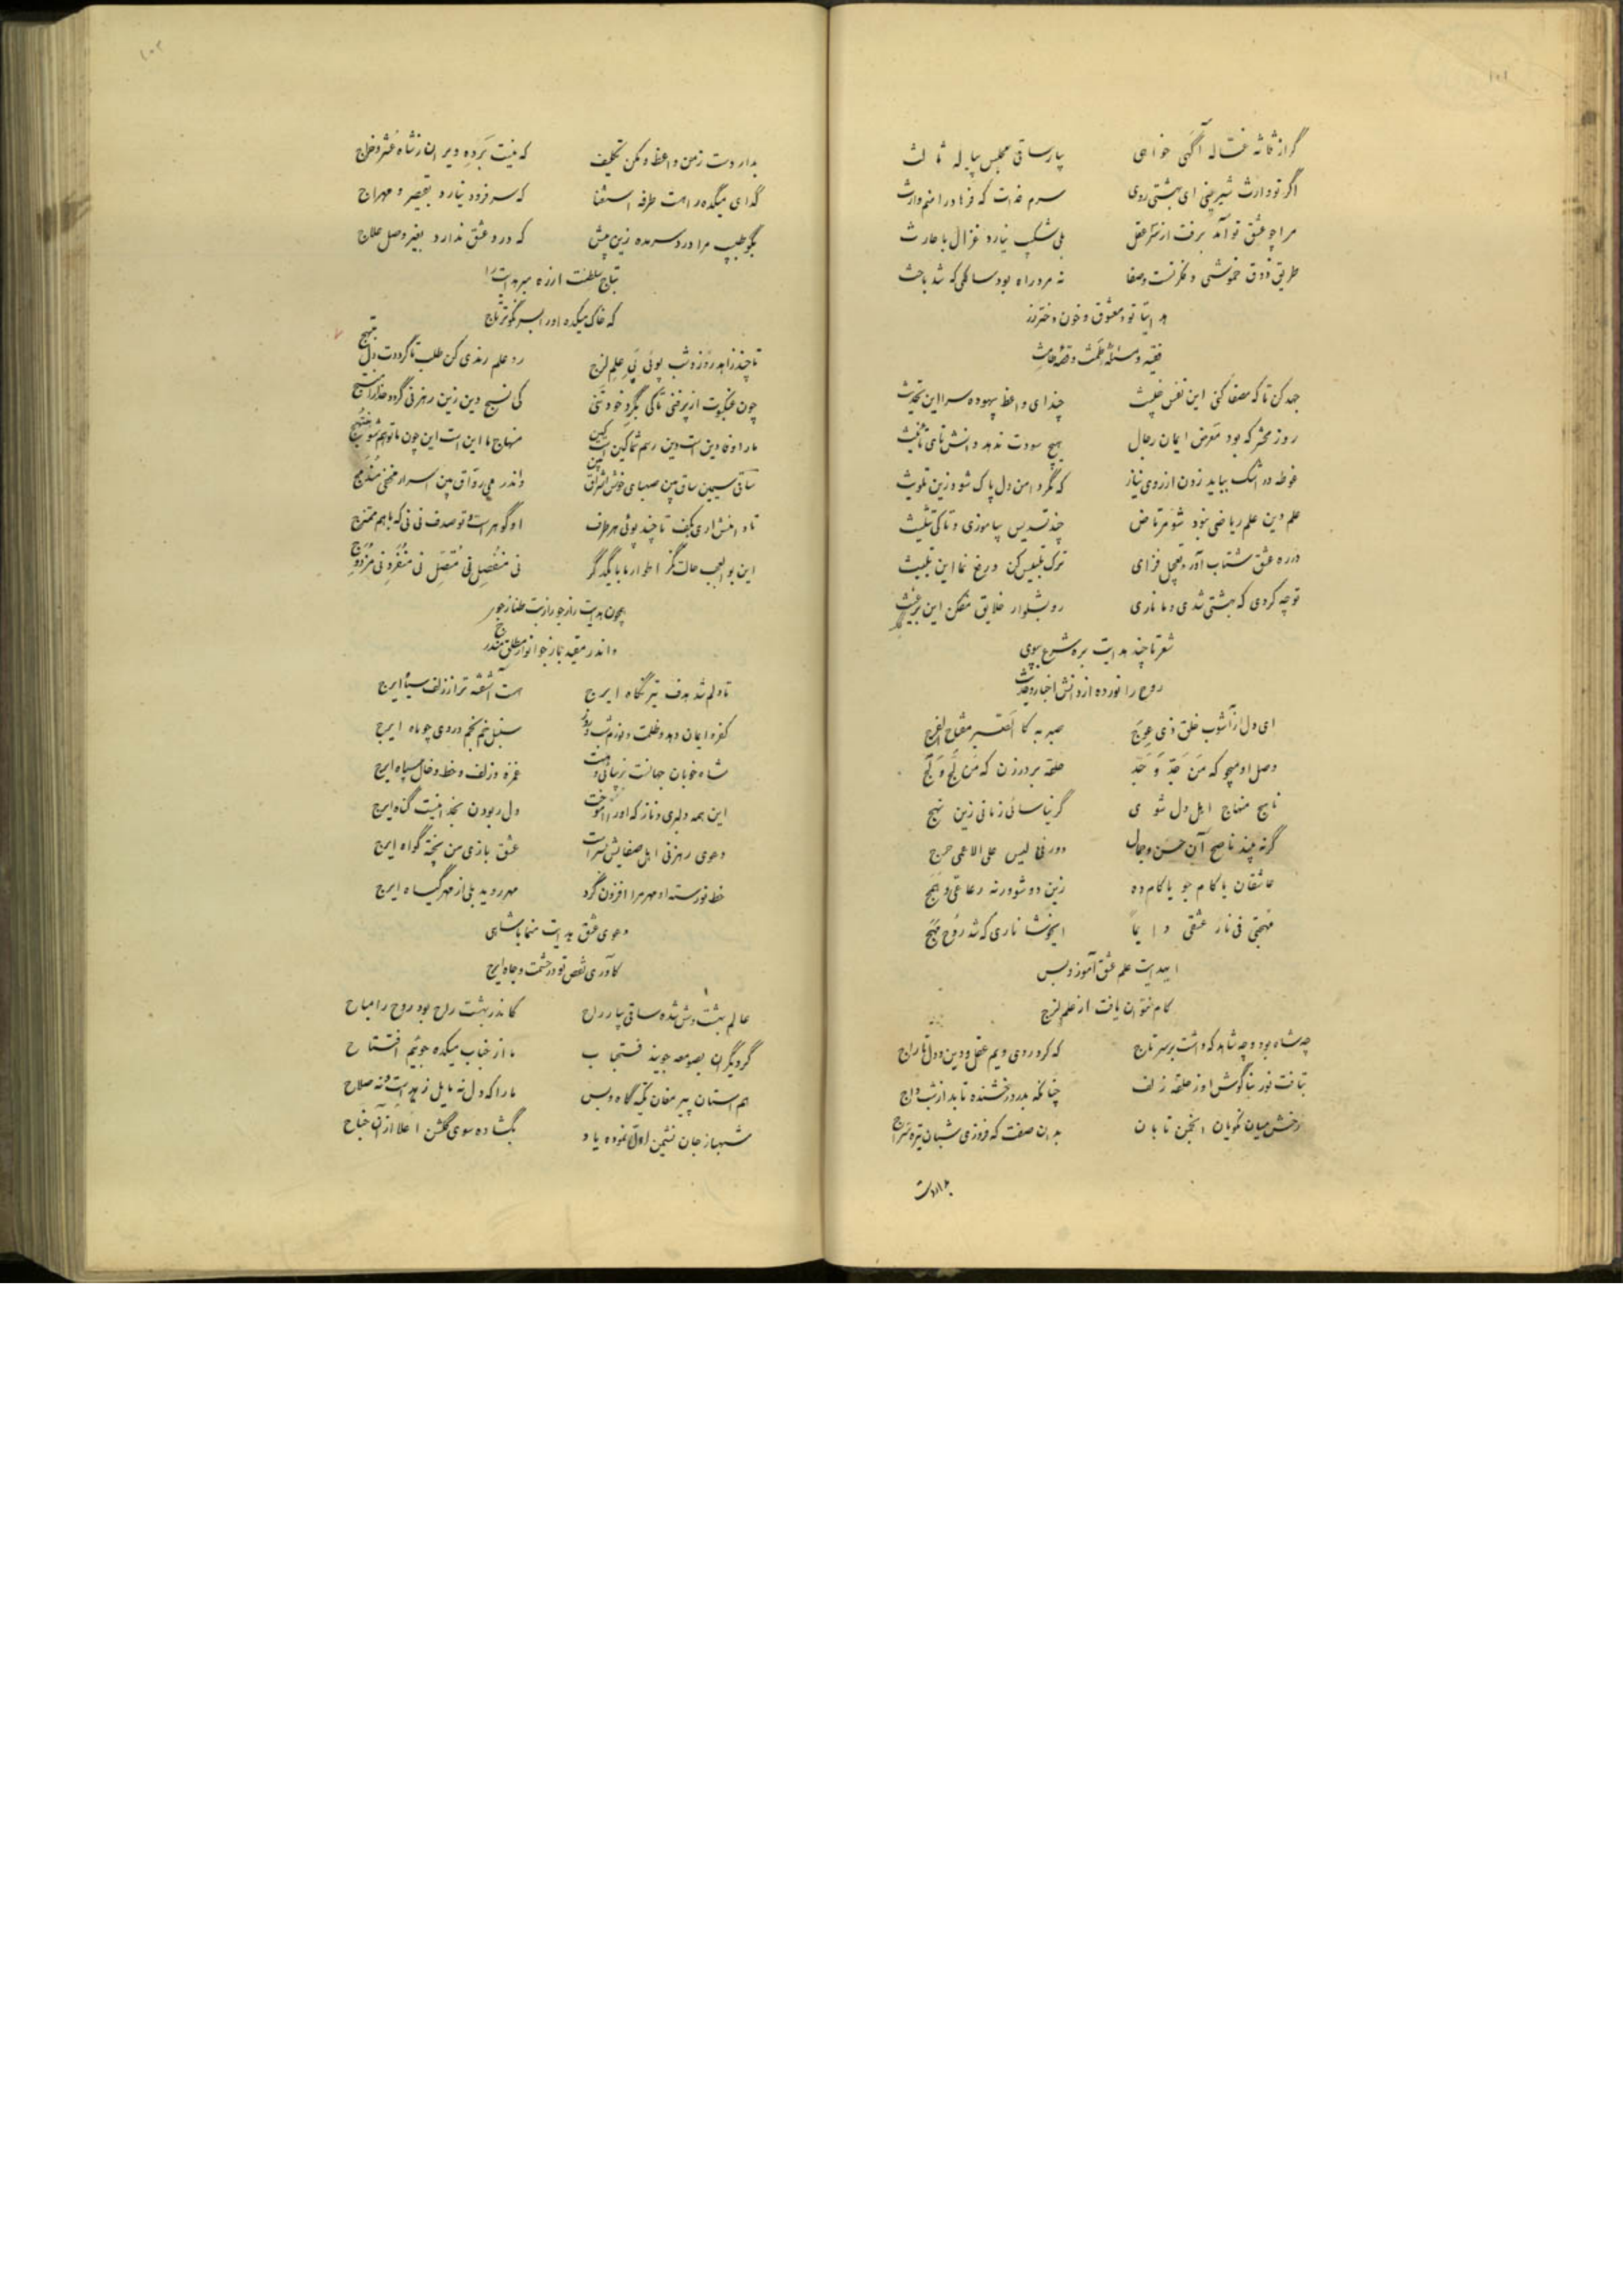 ۱۰۱
گر از ثلاثه غساله آگهی خواهی بیار ساقی مجلس پیاله ثالث
اگر تو وارث شیرینی ای بهشتی روی سرم فدات که فرهاد را منم وارث
مرا چو عشق تو آمد برفت از سر عقل بلی شکیب نیارد غزال با حارث
طریق ذوق خموشی و فکرتست و صفا نه مرد راه بود سالکی که شد باحث
هدایتا تو و معشوق و خون دختر رز
فقیه و مسئله طمث و قصه حامث
جهد کن تا که مصفا کنی این نفس خبیث چند ای واعظ بیهوده سرا این تحدیث
روز محشر که بود معرض ایمان رجال هیچ سودت ندهد دانش تای تأنیث
غوطه در اشک بباید زدن از روی نیاز که نگردد امن دل پاک شود زین تلویث
علم دین علم ریاضی نبود شو مرتاض چند تسدیس بیاموزی و تا کی تثلیث
در ره عشق شتاب آور و تعجیل فزای ترک تلبیس کن و رفع نما این تلبیث
توجه کردی که بهشتی شدی و ما ناری رو بشلوار خلایق مفکن این
شعر تا چند هدایت بره شرع بپوی
روح را نور ده از دانش اخبار و حدیث
ای دل از آشوب خلق ذی عوج صبر به کالصبر مفتاح الفرج
وصل او میجو که من جد وجد حلقه بر در زن که من لج ولج
ناهج منهاج اهل دل شوی گر نیاسائی زمانی زین نهج
گر نه بیند ناصح آن حسن و جمال دور فی لیس علی الاعمی حرج
عاشقان یا کام جو یا کام ده زین دو شو ورنه رعاعی و همج
مهجتی فی نار عشقی دایما ایخوشا ناری که شد روح مهج
ای هدایت علم عشق آموز و بس
کام نتوان یافت از علم لزج
چه شاه بود و چه شاهد که داشت بر سر تاج که کرد روی ویم عقل و دین و دل تاراج
بتافت نور بناگوش او ز حلقه زلف چنانکه بدر درخشنده تابد از شب داج
رخش میان نکویان انجمن تابان بدان صفت که فروزی شبان تیره سراج
بدار دست
۱۰۲
بدار دست ز من واعظ و مکن تکلیف که نیست بر ده ویران ز شاه عشر و خراج
گدای میکده را هست طرفه استغنا که سر فرود نیارد بقیصر و مهراج
بگو طبیب مرا درد سر مده زین بیش که درد عشق ندارد بغیر وصل علاج
بتاج سلطنت ار ره مبر هدایت را
که خاک میکده او را بسر نکوتر تاج
تا چند زاهد روز و شب پوئی پی علم لزج رو علم رندی کن طلب تا گرددت دل مبتهج
چون عنکبوت از پر فنی تا کی بگرد خود تنی کی نسج دین زین رهزنی گردد خدا را منتسج
ما را وفا دین است دین رسم شما کین است کین منهاج ما این است این چون ما تو هم شو منتهج
ساقی سیمین ساق بین صهبای خوش اشراق بین واندر می رواق بین اسرار مخفی مندمج
تا دامنش آری بکف تا چند پوئی هر طرف او گوهر است و تو صدف نی نی که با هم ممتزج
این بوالعجب حالت نگر اطوار ما با یکدگر نی منفصل نی متصل نی منفرد نی مزدوج
همچون هدایت راز جو راز بت طناز جو
واندر مقید باز جو انوار مطلق مندرج
تا دلم شد هدف تیر نگاه ایرج هست آشفته تر از زلف سیاه ایرج
کفر و ایمان دهد و ظلمت و نورم شب و روز سنبل خم بخم و روی چو ماه ایرج
شاه خوبان جهانست بزیبائی و هست غمزه و زلف و خط و خال سپاه ایرج
این همه دلبری و ناز که او را آموخت دل ربودن بخدا نیست گناه ایرج
دعوی رهزنی اهل صفایش بسر است عشق بازی من پخته گواه ایرج
خط نورسته او مهر مرا افزون کرد مهر روید بلی از مهر گیاه ایرج
دعوی عشق هدایت منما با شاهی
کآوری نقص تو در حشمت و جاه ایرج
عالم بهشت وش شده ساقی بیار راح کاندر بهشت راح بود روح را مباح
گر دیگران بصومعه جویند فتح باب ما از جناب میکده جوئیم افتتاح
هم آستان پیر مغان تکیه گاه و بس ما را که دل نه مایل زهد است و نه صلاح
شهباز جان نشیمن اول نموده یاد بگشاده سوی گلشن اعلا از آن جناح